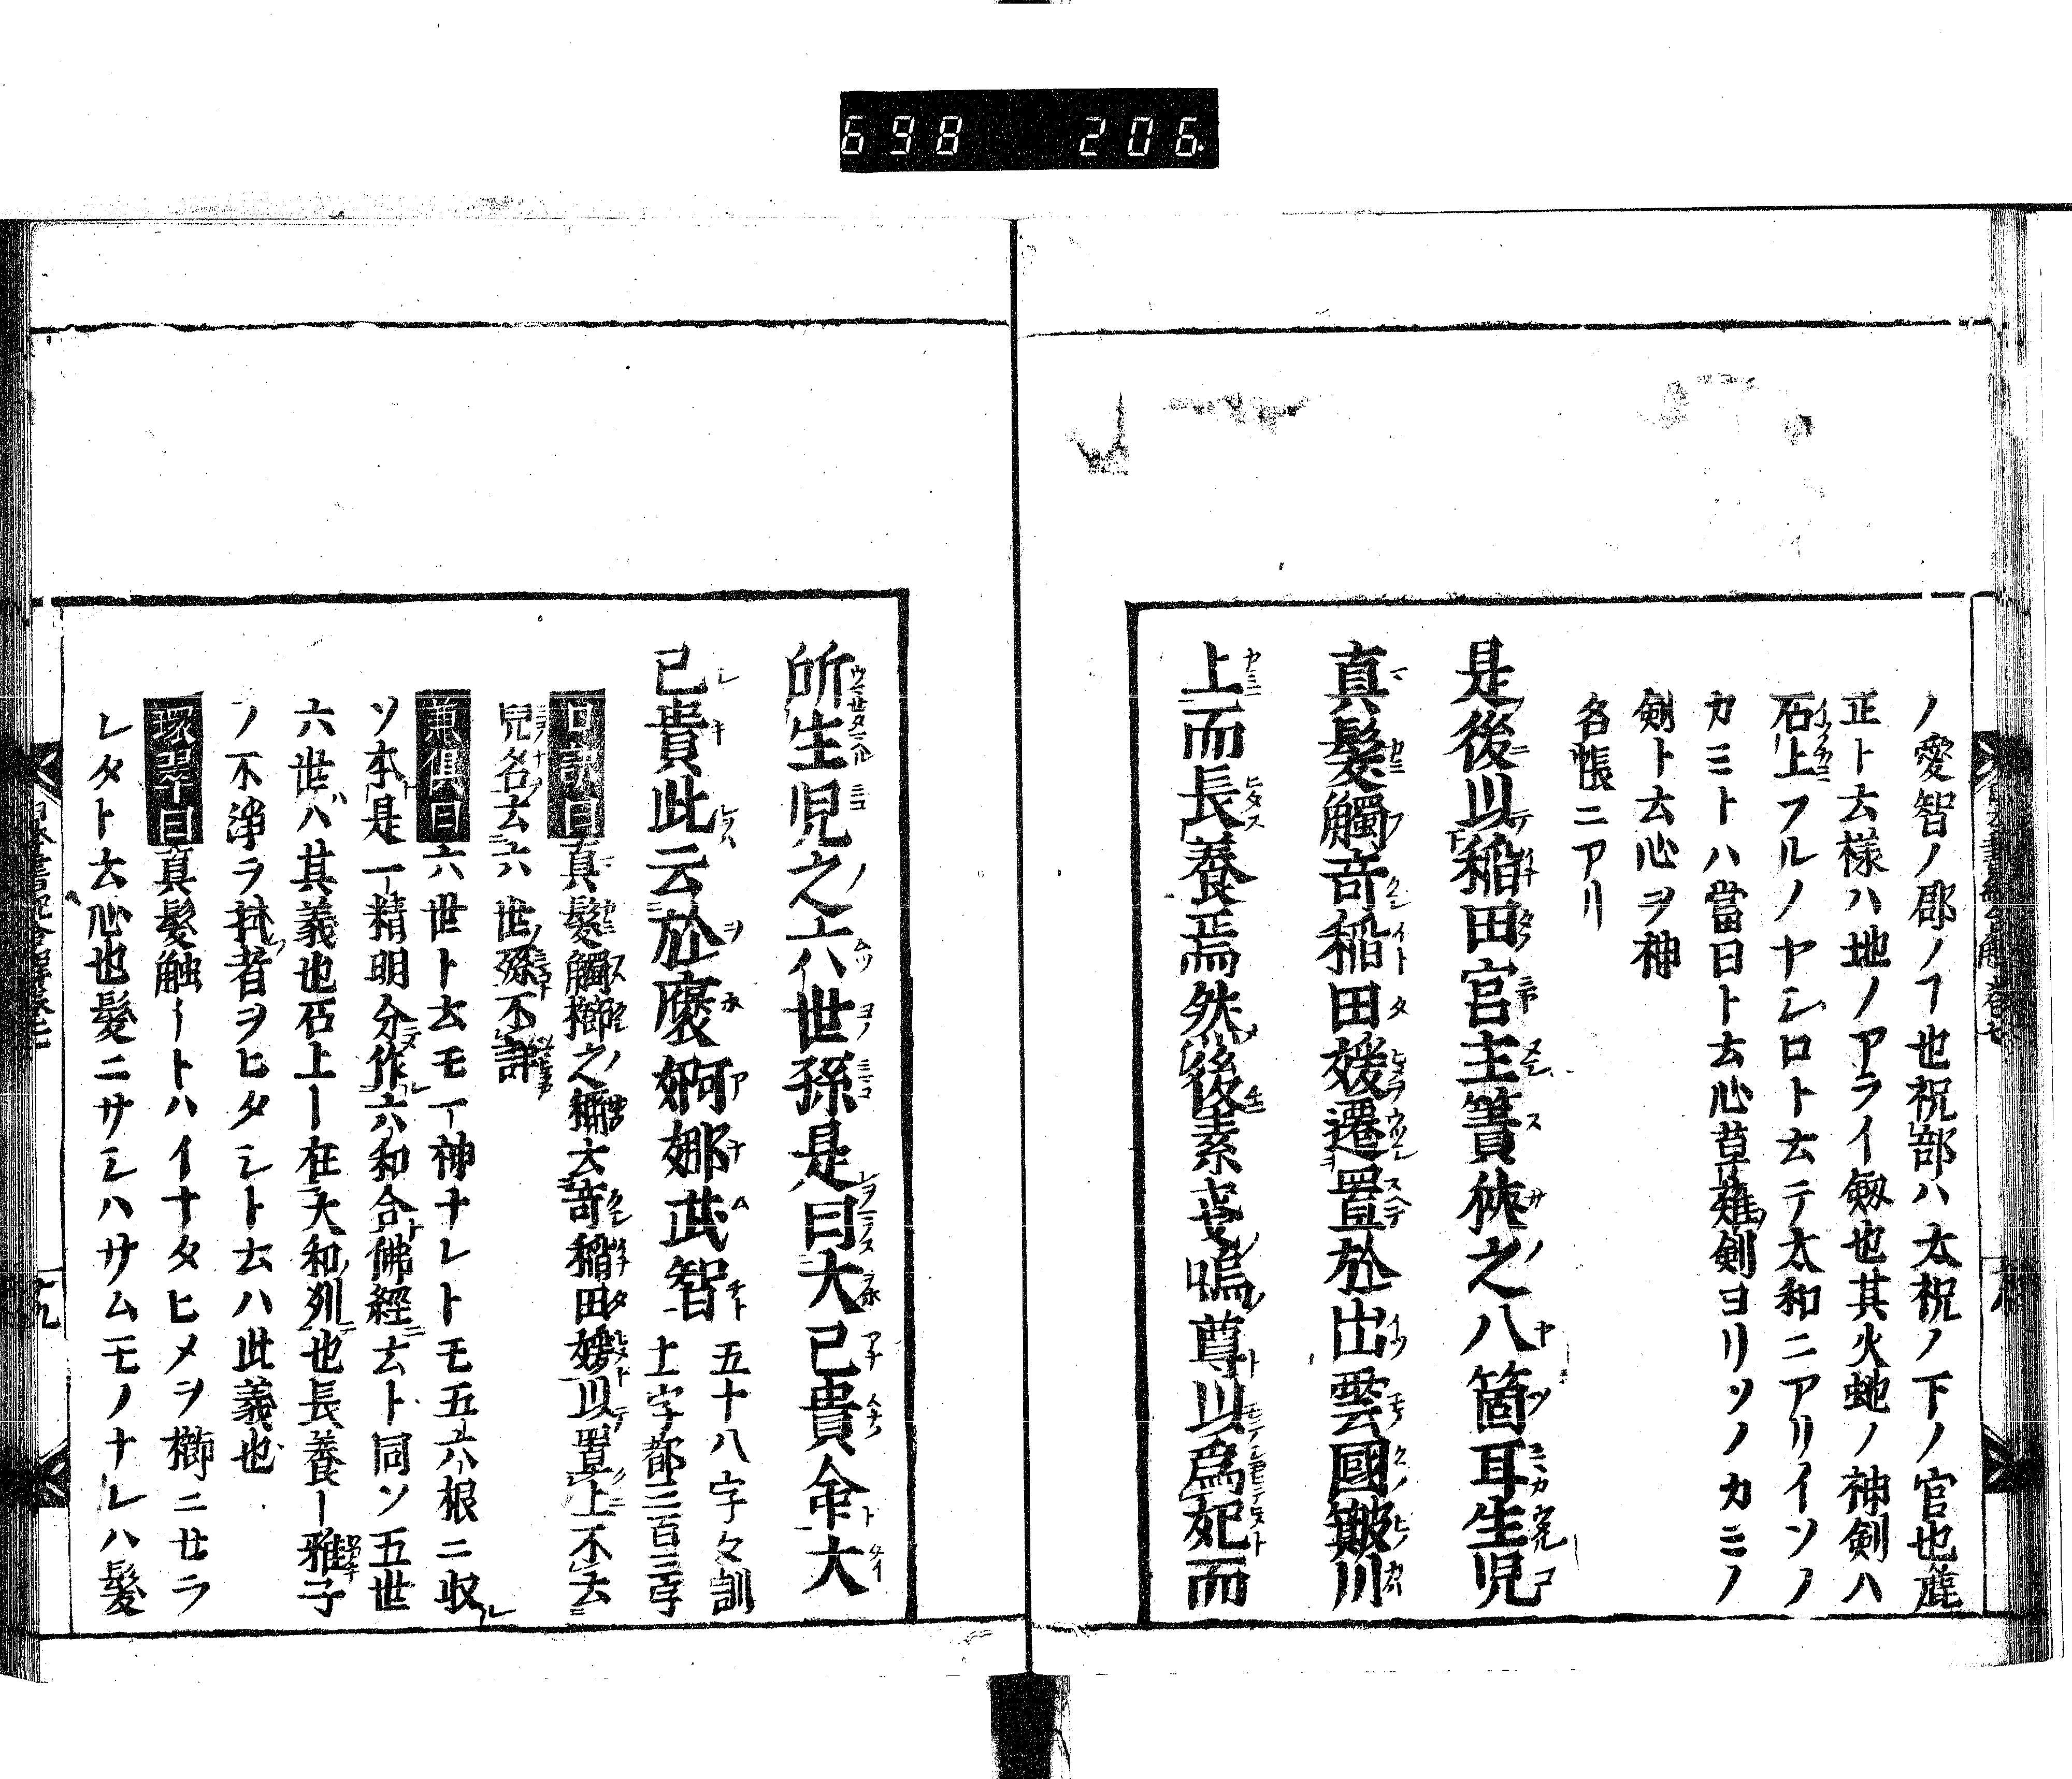 698 206
ノ愛智ノ郡ノヿ也祝部ハ太祝ノ下ノ官也麁
正ト云様ハ地ノアライ剱也其火虵ノ神剣ハ
石上フルノヤシロト云テ太和ニアリイソノ
カミトハ當日ト云心草薙剣ヨリソノカミノ
剣ト云心ヲ神
名帳ニアリ
是後以稲田宮主簀狹之八箇耳生児
真髪觸奇稲田媛遷置於出雲國簸川
上而長養焉然後素戔嗚尊以為妃而
所生児之六世孫是曰大己貴命大
己貴此云於褒婀娜武智
五十八字々訓
上字都三百三字
口訣曰真髮觸櫛之稱云奇稲田媛以置上不云
児名云六世孫不詳
兼倶曰六世ト云モ一神ナレトモ五六根ニ収
ソ本是一精明分作六和合佛經云ト同ソ五世
六世ハ其義也石上ー在大和列也長養ー雅子
ノ不浄ラ拭者ヲヒタシト云ハ此義也
環翠曰真髪触ートハイナタヒメヲ櫛ニサラ
レタト云心也髪ニサシハサムモノナレハ髪